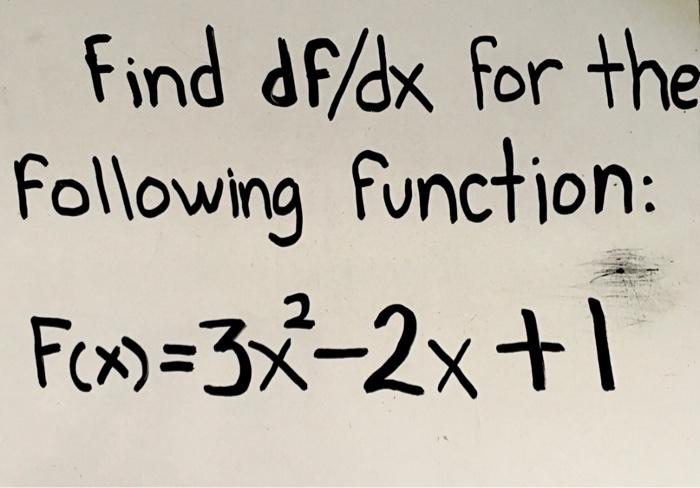 Find dF/dx for the
Following function:
F(x)=3x²-2x+1